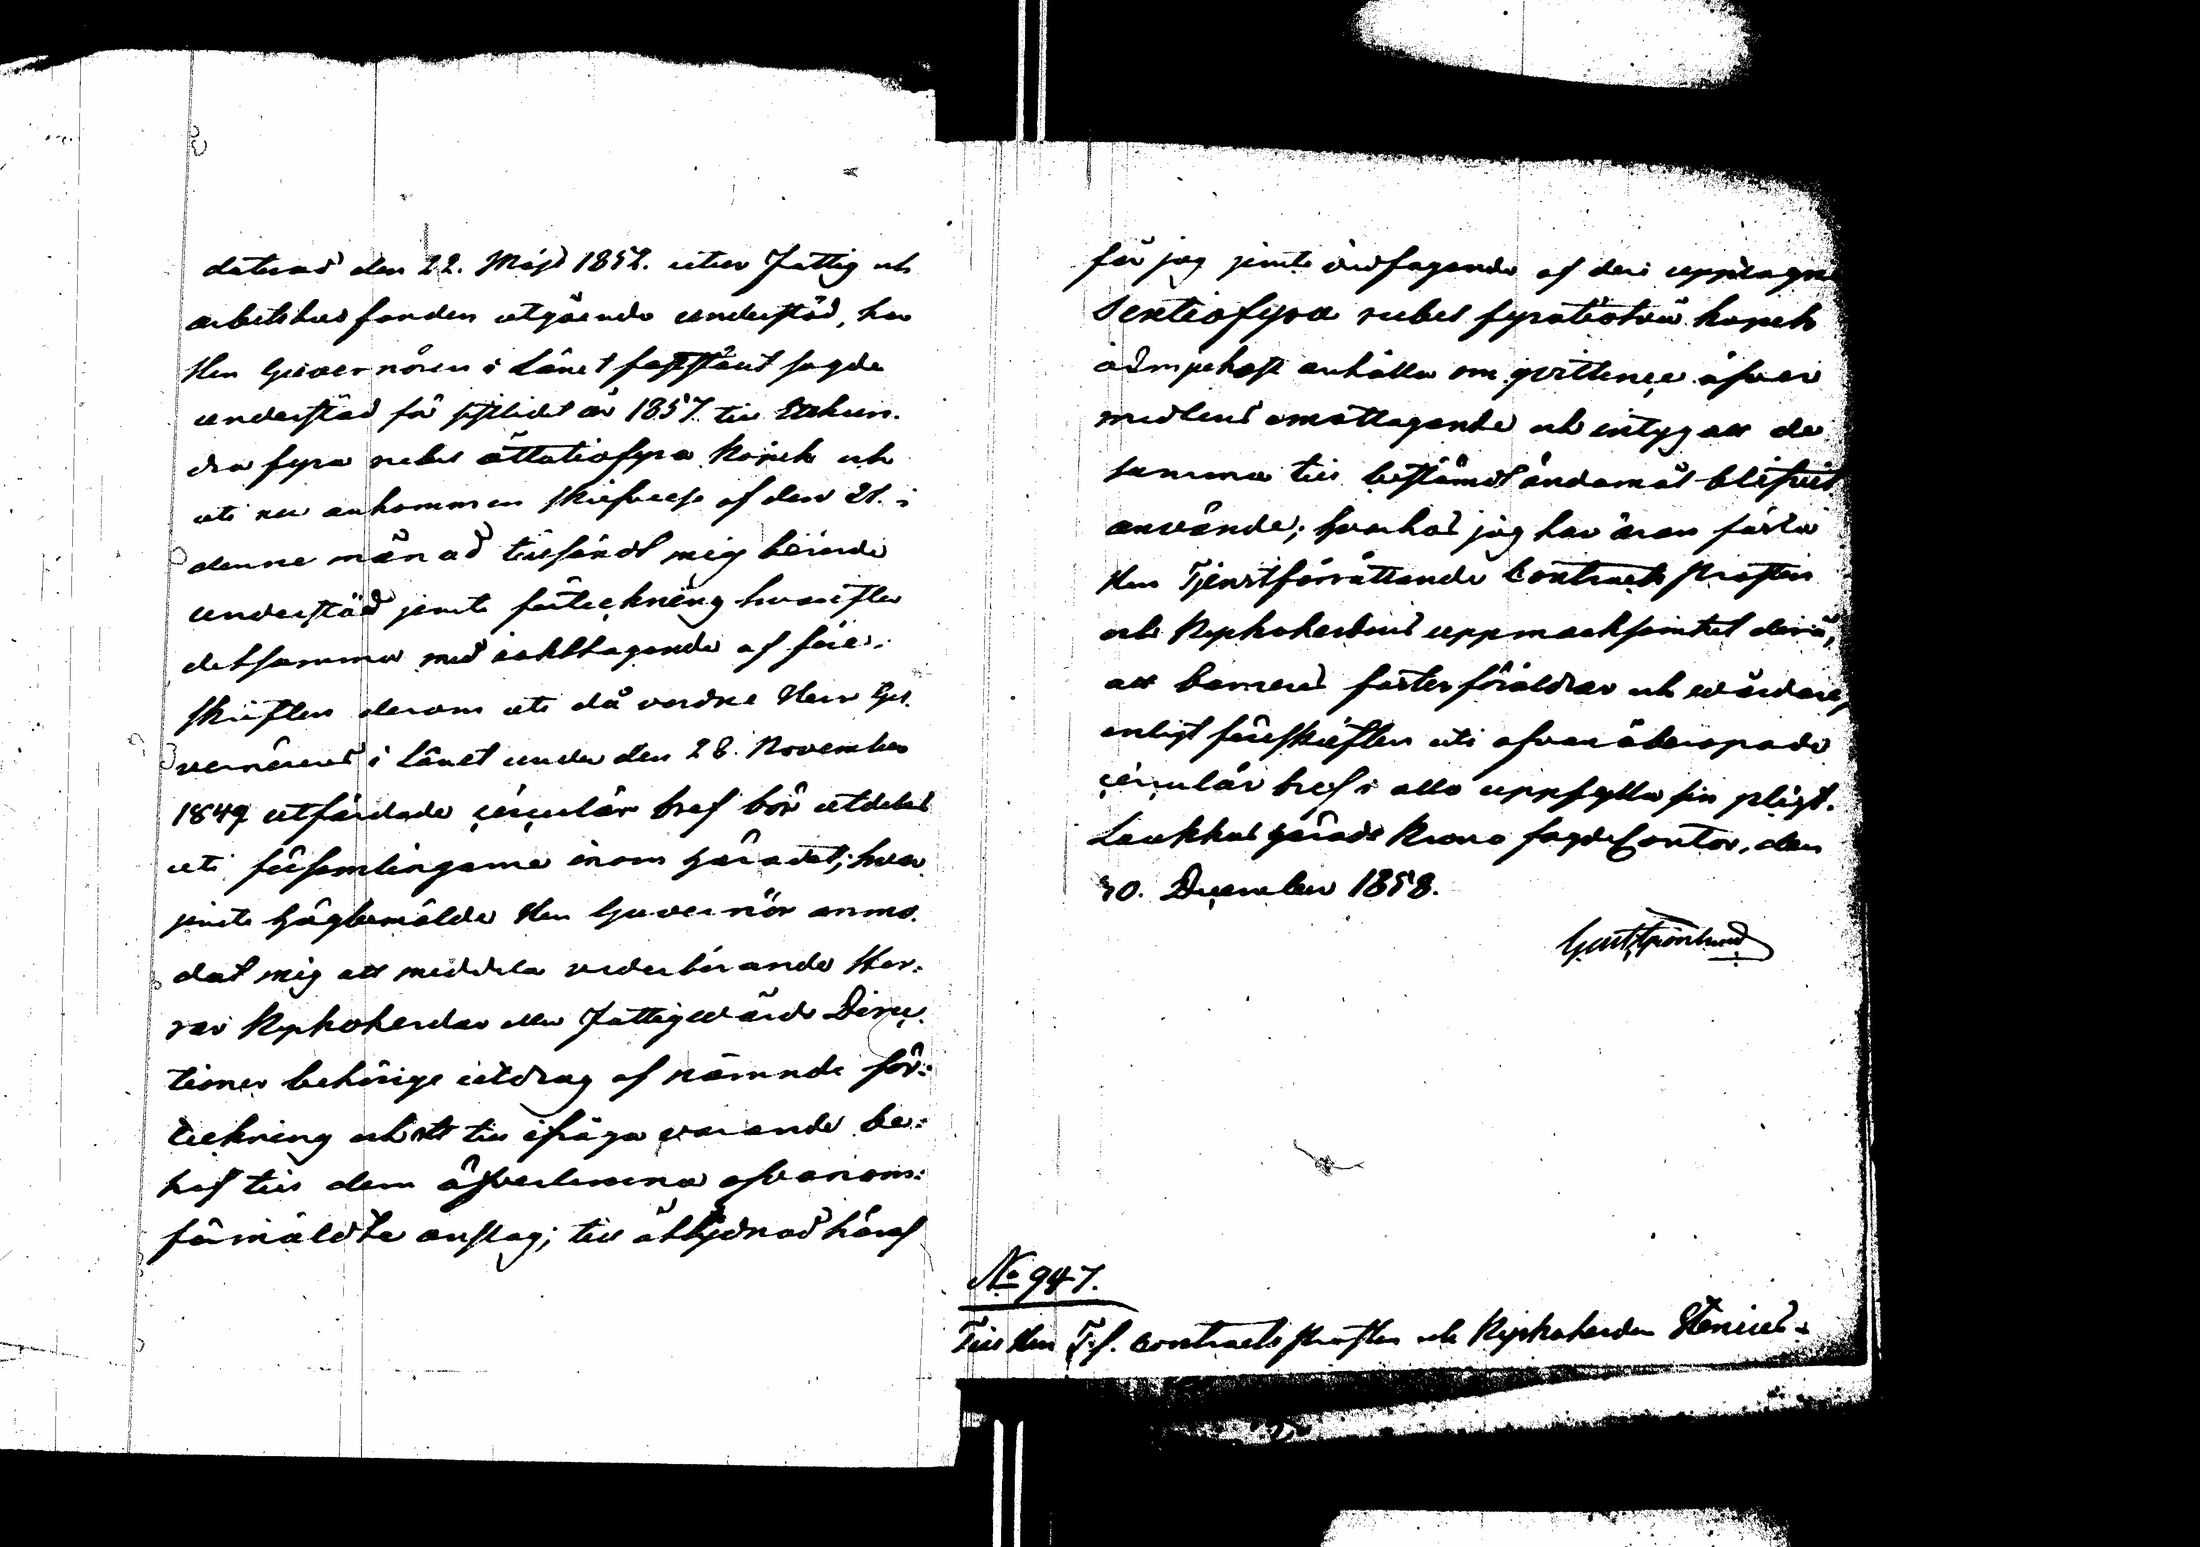 daterad den 22. Maji 1852. utur Fattig och
arbetshus fonden utgående understöd, har
Herr Guvernören i Länet fastställt sagde
understöd för sistlidet år 1857. till Etthun-
dra fyra rubel åttatiofyra Kopek och
uti nu ankommen skrifvelse af den 21. i
denne månad tillsändt mig berörde
understöd jemte förteckning hvarefter
detsamma med iakttagande af före-
skriften derom uti då varande Herr Gu-
vernörens i Länet under den 28. November
1849 utfärdade circulär bref bör utdelas
uti församlingarne inom Häradet; hvar
jemte Högbemälde Herr Guvernör anmo-
dat mig att meddela vederbörande Her-
rar Kyrkoherdar eller Fattigvårds Direc-
tioner behörige utdrag af nämnde för-
teckning och att till ifråga varande be-
hof till dem öfverlemna ofvanom-
förmäldte anslag; till åtlydnad häraf
får jag jemte bifogande af deri upptagne
Sextiofyra rubel fyratiotvå kopek
ödmjukast anhålla om qvittence öfver
medlens emottagande och intyg att de
samma till bestämdt ändamål blifvit
använde; hvarhos jag har äran fästa
Herr Tjenstförrättande Contracts Prosten
och Kyrkoherdens uppmärksamhet derå,
att barnens fosterföräldrar och vårdare,
enligt föreskriften uti ofvan åberopade
circulär bref i allo uppfylla sin pligt.
Laukkas Härads Krono fogde Contor, den
30. December 1858.
No 947.
Till Herr T. f. Contracts Prosten och Kyrkoherden Stenius.